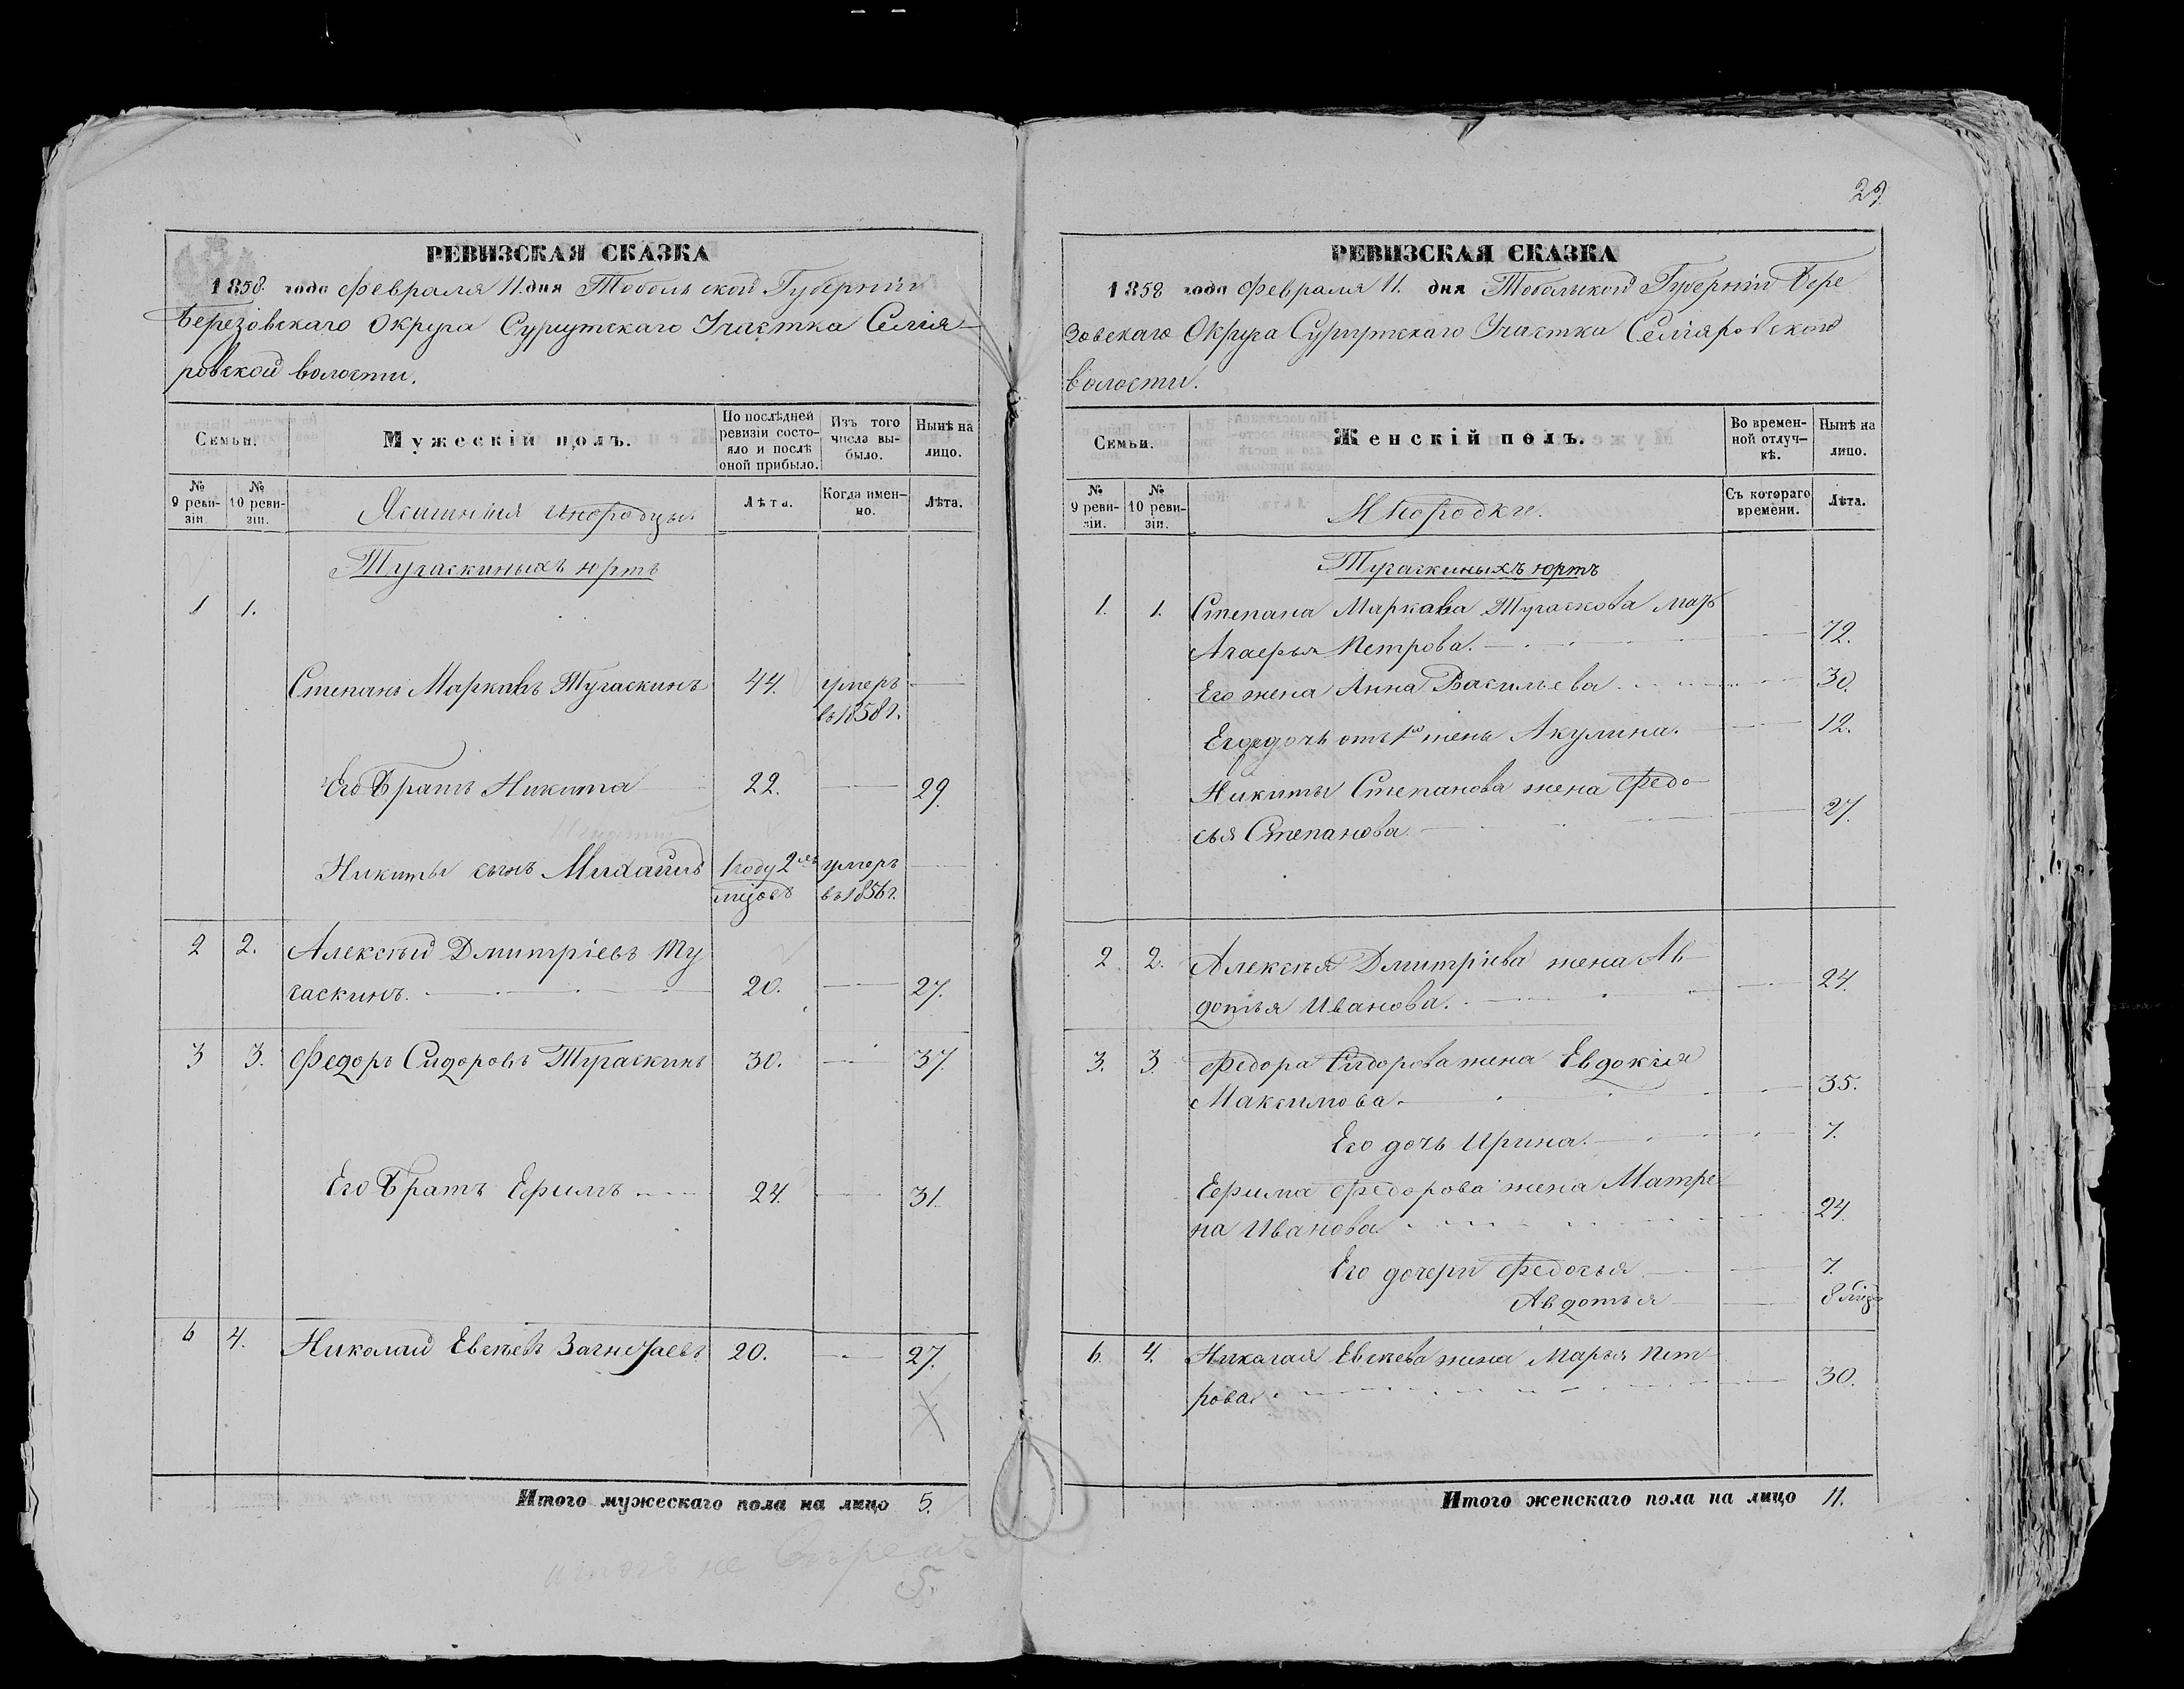 29
РЕВИЗСКАЯ СКАЗКА
1858 года Февраля 11. дня Тобольской Губерніи
Березовскаго Округа Сургутскаго Участка Селія-
ровской волости.
Семьи.
Мужескій полъ.
По послѣдней ревизіи состо-
яло и послѣ оной прибыло.
Изъ того числа вы-
было.
Нынѣ на лицо.
№ 9 реви-
зіи.
№ 10 реви-
зіи.
Ясашнія инородцы.
Лѣта.
Когда имен-
но.
Лѣта.
Тугаскиныхъ юртъ
1 1.
Степанъ Марковъ Тугаскинъ 44. умеръ
въ 1858 г.
Его Братъ Никита 22. 29.
Никиты сынъ Михаилъ 1 году 2 умеръ
въ 1856 г.
2 2. Алексѣй Дмитріевъ Ту
гаскинъ. 20. 27.
3 3. Федоръ Сидоровъ Тугаскинъ 30. 37.
Его Братъ Ефимъ 24. 31.
6 4. Николай Евсѣевъ 20. 27.
Итого мужескаго пола на лицо 5.
итогъ не
5.
РЕВИЗСКАЯ СКАЗКА
1858 года Февраля 11. дня Тобольской Губерніи Бере
зовскаго Округа Сургутскаго Участка Селіяровской
волости.
Семьи.
Женскій полъ.
Во времен-
ной отлуч-
кѣ.
Нынѣ на лицо.
№ 9 реви-
зіи.
№ 10 реви-
зіи.
Инородки.
Съ котораго времени.
Лѣта.
Тугаскиныхъ юртъ
1. 1. Степана Маркова Тугаскова мать
Агафья Петрова. 72.
Его жена Анна Васильева 30.
дочь отъ 1й жены Акулина. 12.
Никиты Степанова жена Федо-
сья Степанова 27.
2. 2. Алексѣя Дмитріева жена Ав-
дотья Иванова. 24.
3. 3 Федора Сидорова жена Евдокія
Максимова 35.
Его дочь Ирина. 7.
Ефима Федорова жена Матре
на Иванова 24.
Его дочери Федосья 7.
Авдотья 8
6. 4. Николая Евсѣева жена Марья Пет-
рова 30.
Итого женскаго пола на лицо 11.